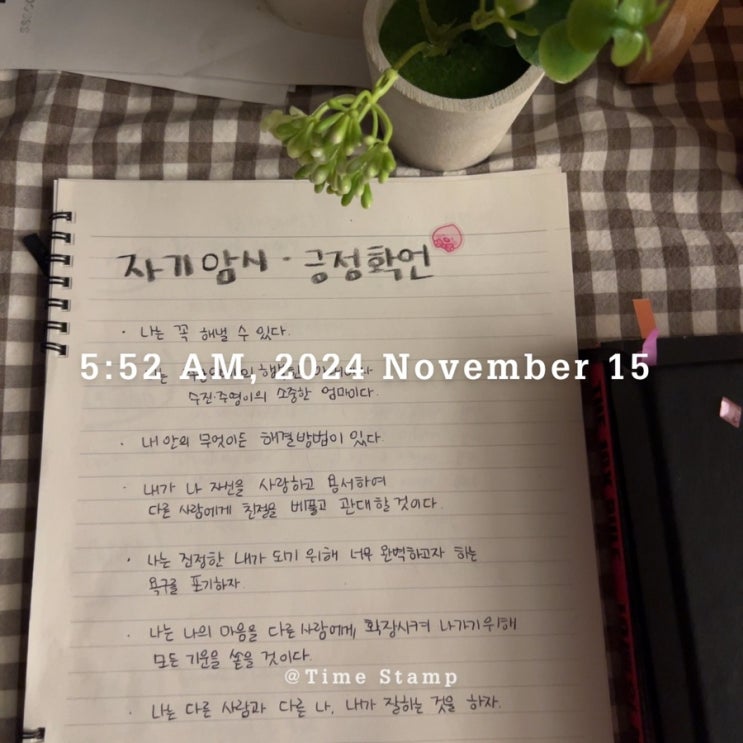 자기암시 · 긍정확언
· 나는 꼭 해낼 수 있다.
5:52 AM, 2024 November 15
수진·주영이의 소중한 엄마이다.
· 내 안의 무엇이든 해결방법이 있다.
· 내가 나 자신을 사랑하고 용서하여
다른 사람에게 친절을 베풀고 관대할 것이다.
· 나는 진정한 내가 되기 위해 너무 완벽하고자 하는
욕구를 포기하자.
· 나는 나의 마음을 다른 사람에게, 확장시켜 나가기 위해
모든 기운을 쏟을 것이다.
@Time Stamp
· 나는 다른 사람과 다른 나, 내가 잘하는 것을 하자.